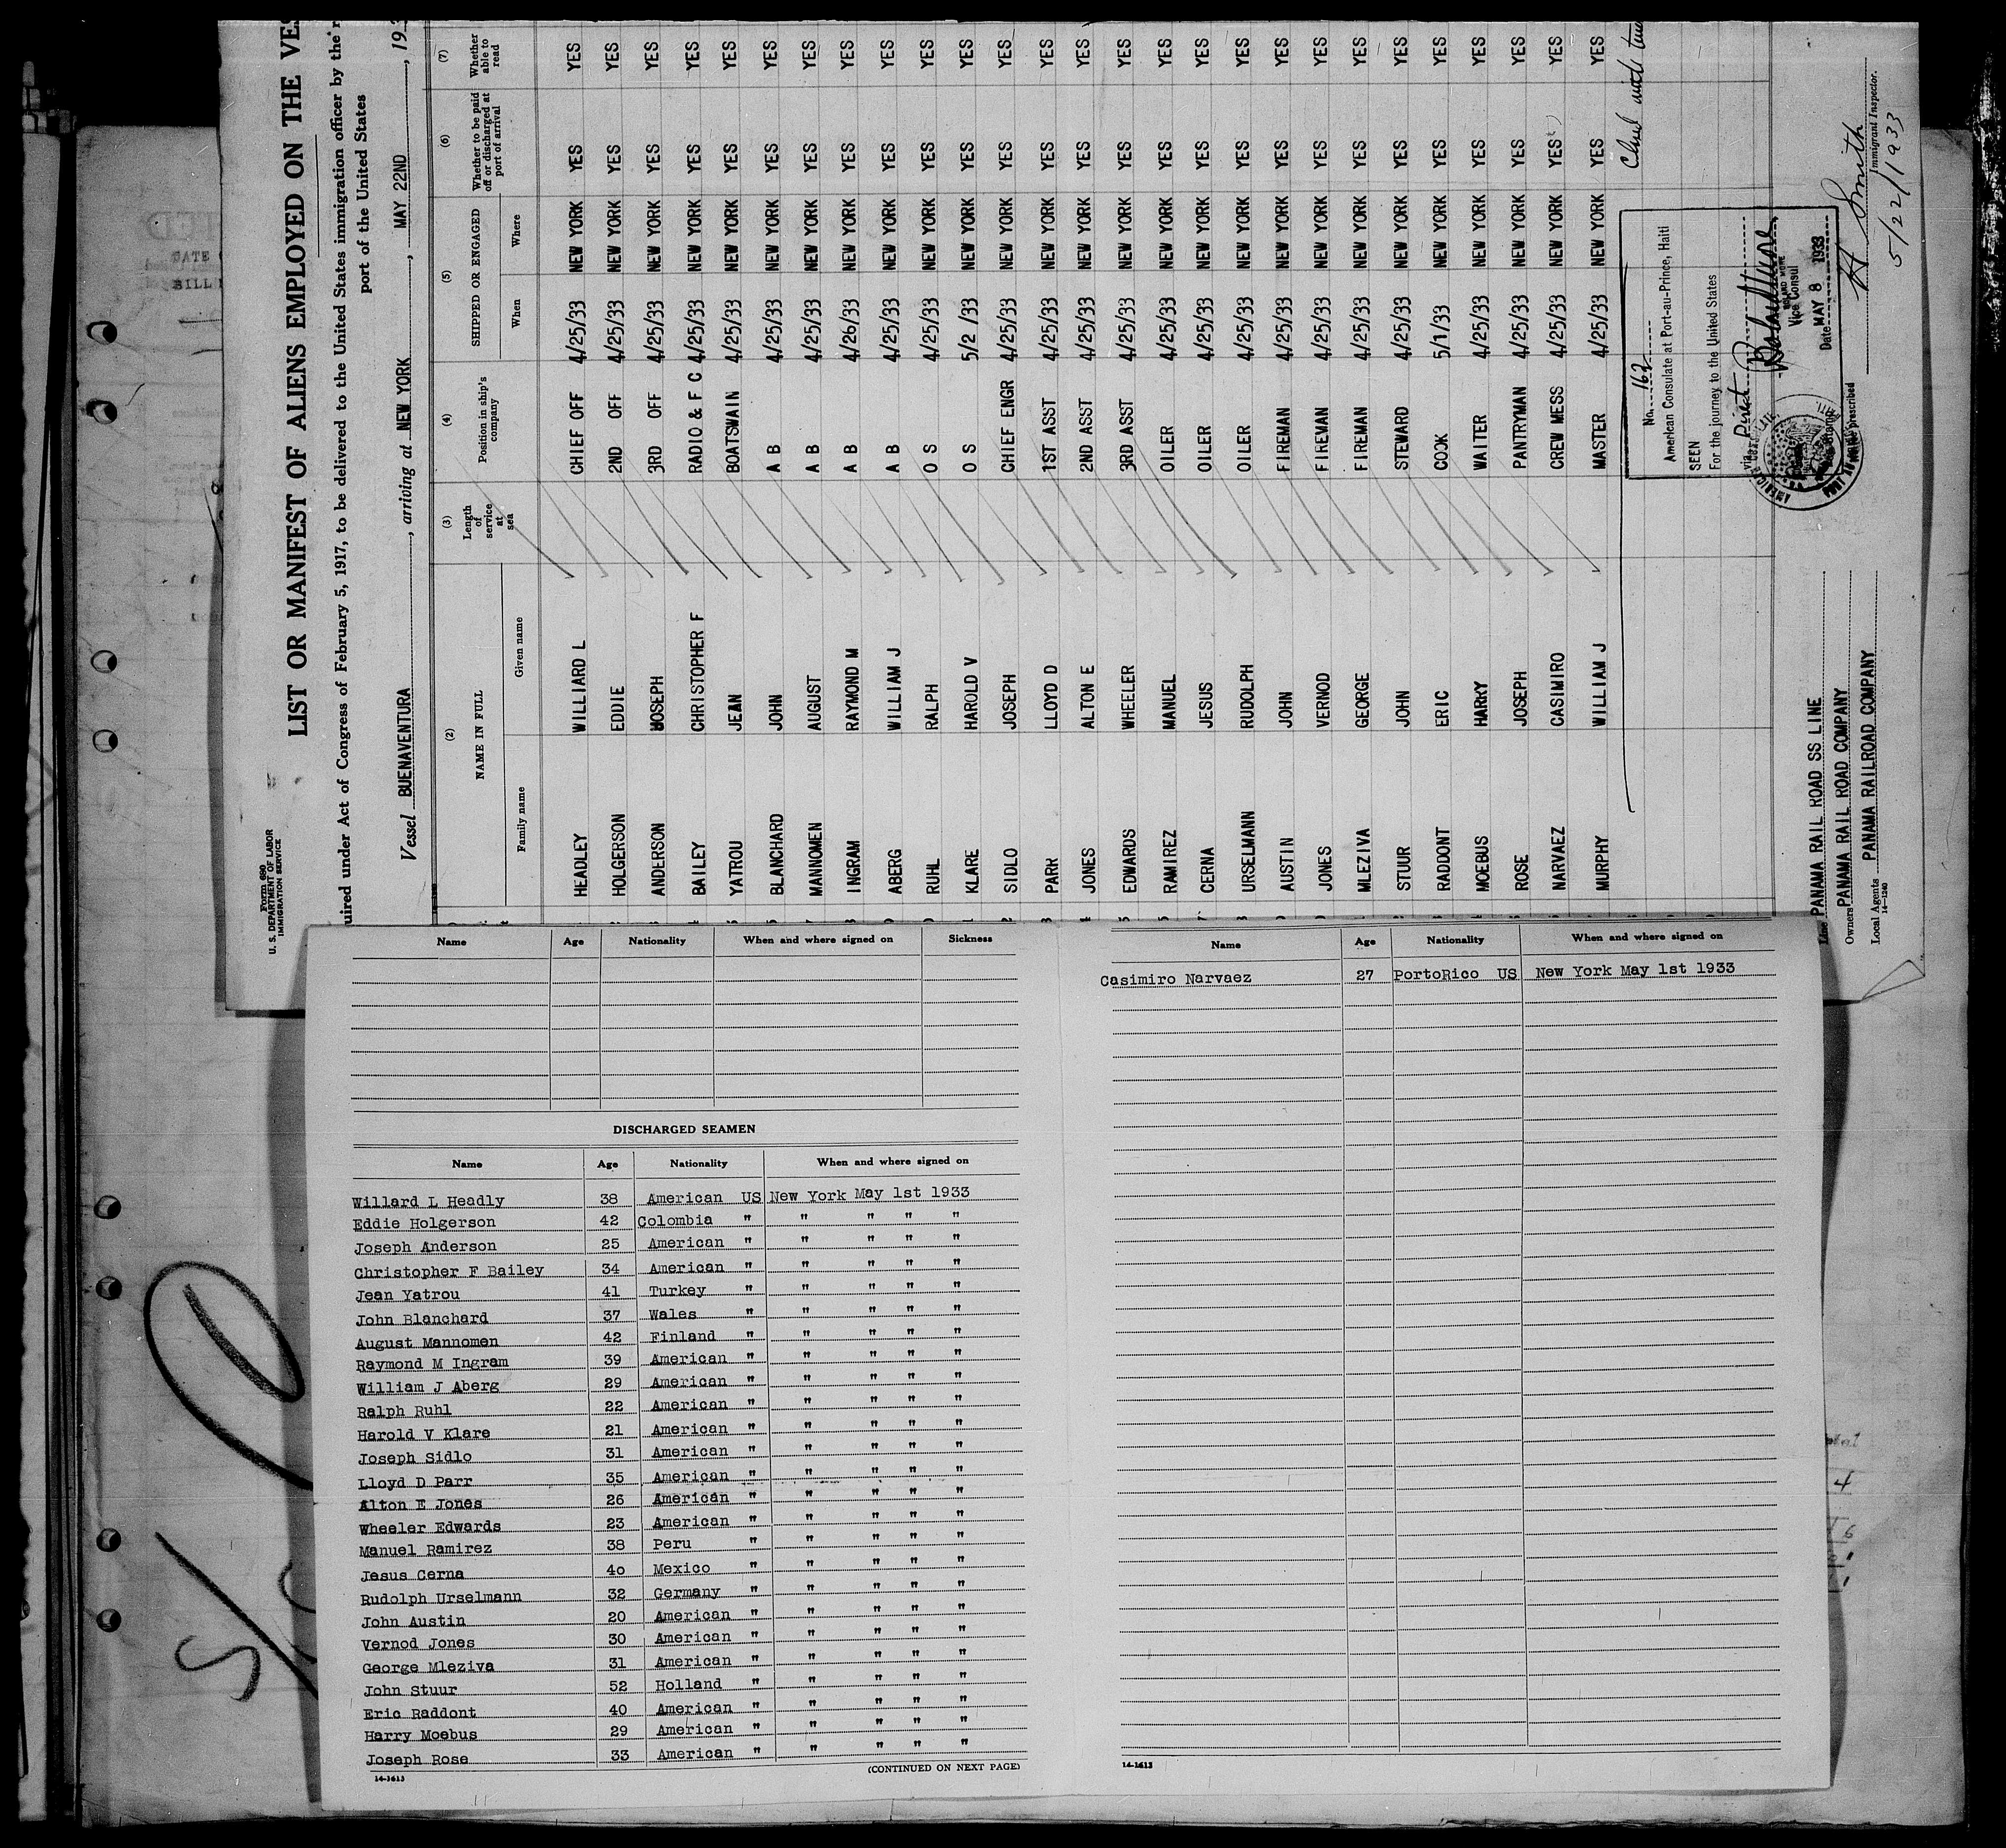 Form 690
U. S. DEPARTMENT OF LABOR
IMMIGRATION SERVICE
LIST OR MANIFEST OF ALIENS EMPLOYED ON THE VES
uired under Act of Congress of February 5, 1917, to be delivered to the United States immigration officer by the r
port of the United States
Vessel BUENAVENTURA, arriving at NEW YORK, MAY 22ND, 193
(2) (3) (4) (5) (6) (7)
NAME IN FULL Length of service at sea Position in ship's company SHIPPED OR ENGAGED Whether to be paid off or discharged at port of arrival Whether able to read
Family name Given name When Where
HEADLEY WILLIARD L CHIEF OFF 4/25/33 NEW YORK YES YES
HOLGERSON EDDIE 2ND OFF 4/25/33 NEW YORK YES YES
ANDERSON JOSEPH 3RD OFF 4/25/33 NEW YORK YES YES
BAILEY CHRISTOPHER F RADIO & F C 4/25/33 NEW YORK YES YES
YATROU JEAN BOATSWAIN 4/25/33 NEW YORK YES YES
BLANCHARD JOHN A B 4/25/33 NEW YORK YES YES
MANNOMEN AUGUST A B 4/25/33 NEW YORK YES YES
INGRAM RAYMOND M A B 4/26/33 NEW YORK YES YES
ABERG WILLIAM J A B 4/25/33 NEW YORK YES YES
RUHL RALPH O S 4/25/33 NEW YORK YES YES
KLARE HAROLD V O S 5/2 /33 NEW YORK YES YES
SIDLO JOSEPH CHIEF ENGR 4/25/33 NEW YORK YES YES
PARK LLOYD D 1ST ASST 4/25/33 NEW YORK YES YES
JONES ALTON E 2ND ASST 4/25/33 NEW YORK YES YES
EDWARDS WHEELER 3RD ASST 4/25/33 NEW YORK YES YES
RAMIREZ MANUEL OILER 4/25/33 NEW YORK YES YES
CERNA JESUS OILER 4/25/33 NEW YORK YES YES
URSELMANN RUDOLPH OILER 4/25/33 NEW YORK YES YES
AUSTIN JOHN FIREMAN 4/25/33 NEW YORK YES YES
JONES VERNOD FIREMAN 4/25/33 NEW YORK YES YES
MLEZIVA GEORGE FIREMAN 4/25/33 NEW YORK YES YES
STUUR JOHN STEWARD 4/25/33 NEW YORK YES YES
RADDONT ERIC COOK 5/1/33 NEW YORK YES YES
MOEBUS HARRY WAITER 4/25/33 NEW YORK YES YES
ROSE JOSEPH PANTRYMAN 4/25/33 NEW YORK YES YES
NARVAEZ CASIMIRO CREW MESS 4/25/33 NEW YORK YES YES
MURPHY WILLIAM J MASTER 4/25/33 NEW YORK YES YES
No. 162
American Consulate at Port-au-Prince, Haiti
SEEN
For the journey to the United States
via Direct
Vice Consul
Date MAY 8 1933
Line PANAMA RAIL ROAD SS LINE
Owners PANAMA RAIL ROAD COMPANY
Local Agents PANAMA RAILROAD COMPANY
14-1240
H Smith
Immigrant Inspector.
5/22/1933
Name Age Nationality When and where signed on Sickness
DISCHARGED SEAMEN
Name Age Nationality When and where signed on
Willard L Headly 38 American US New York May 1st 1933
Eddie Holgerson 42 Colombia " " " " "
Joseph Anderson 25 American " " " " "
Christopher F Bailey 34 American " " " " "
Jean Yatrou 41 Turkey " " " " "
John Blanchard 37 Wales " " " " "
August Mannomen 42 Finland " " " " "
Raymond M Ingram 39 American " " " " "
William J Aberg 29 American " " " " "
Ralph Ruhl 22 American " " " " "
Harold V Klare 21 American " " " " "
Joseph Sidlo 31 American " " " " "
Lloyd D Parr 35 American " " " " "
Alton E Jones 26 American " " " " "
Wheeler Edwards 23 American " " " " "
Manuel Ramirez 38 Peru " " " " "
Jesus Cerna 40 Mexico " " " " "
Rudolph Urselmann 32 Germany " " " " "
John Austin 20 American " " " " "
Vernod Jones 30 American " " " " "
George Mleziva 31 American " " " " "
John Stuur 52 Holland " " " " "
Eric Raddont 40 American " " " " "
Harry Moebus 29 American " " " " "
Joseph Rose 33 American " " " " "
14-1613 (CONTINUED ON NEXT PAGE)
Name Age Nationality When and where signed on
Casimiro Narvaez 27 PortoRico US New York May 1st 1933
14-1613